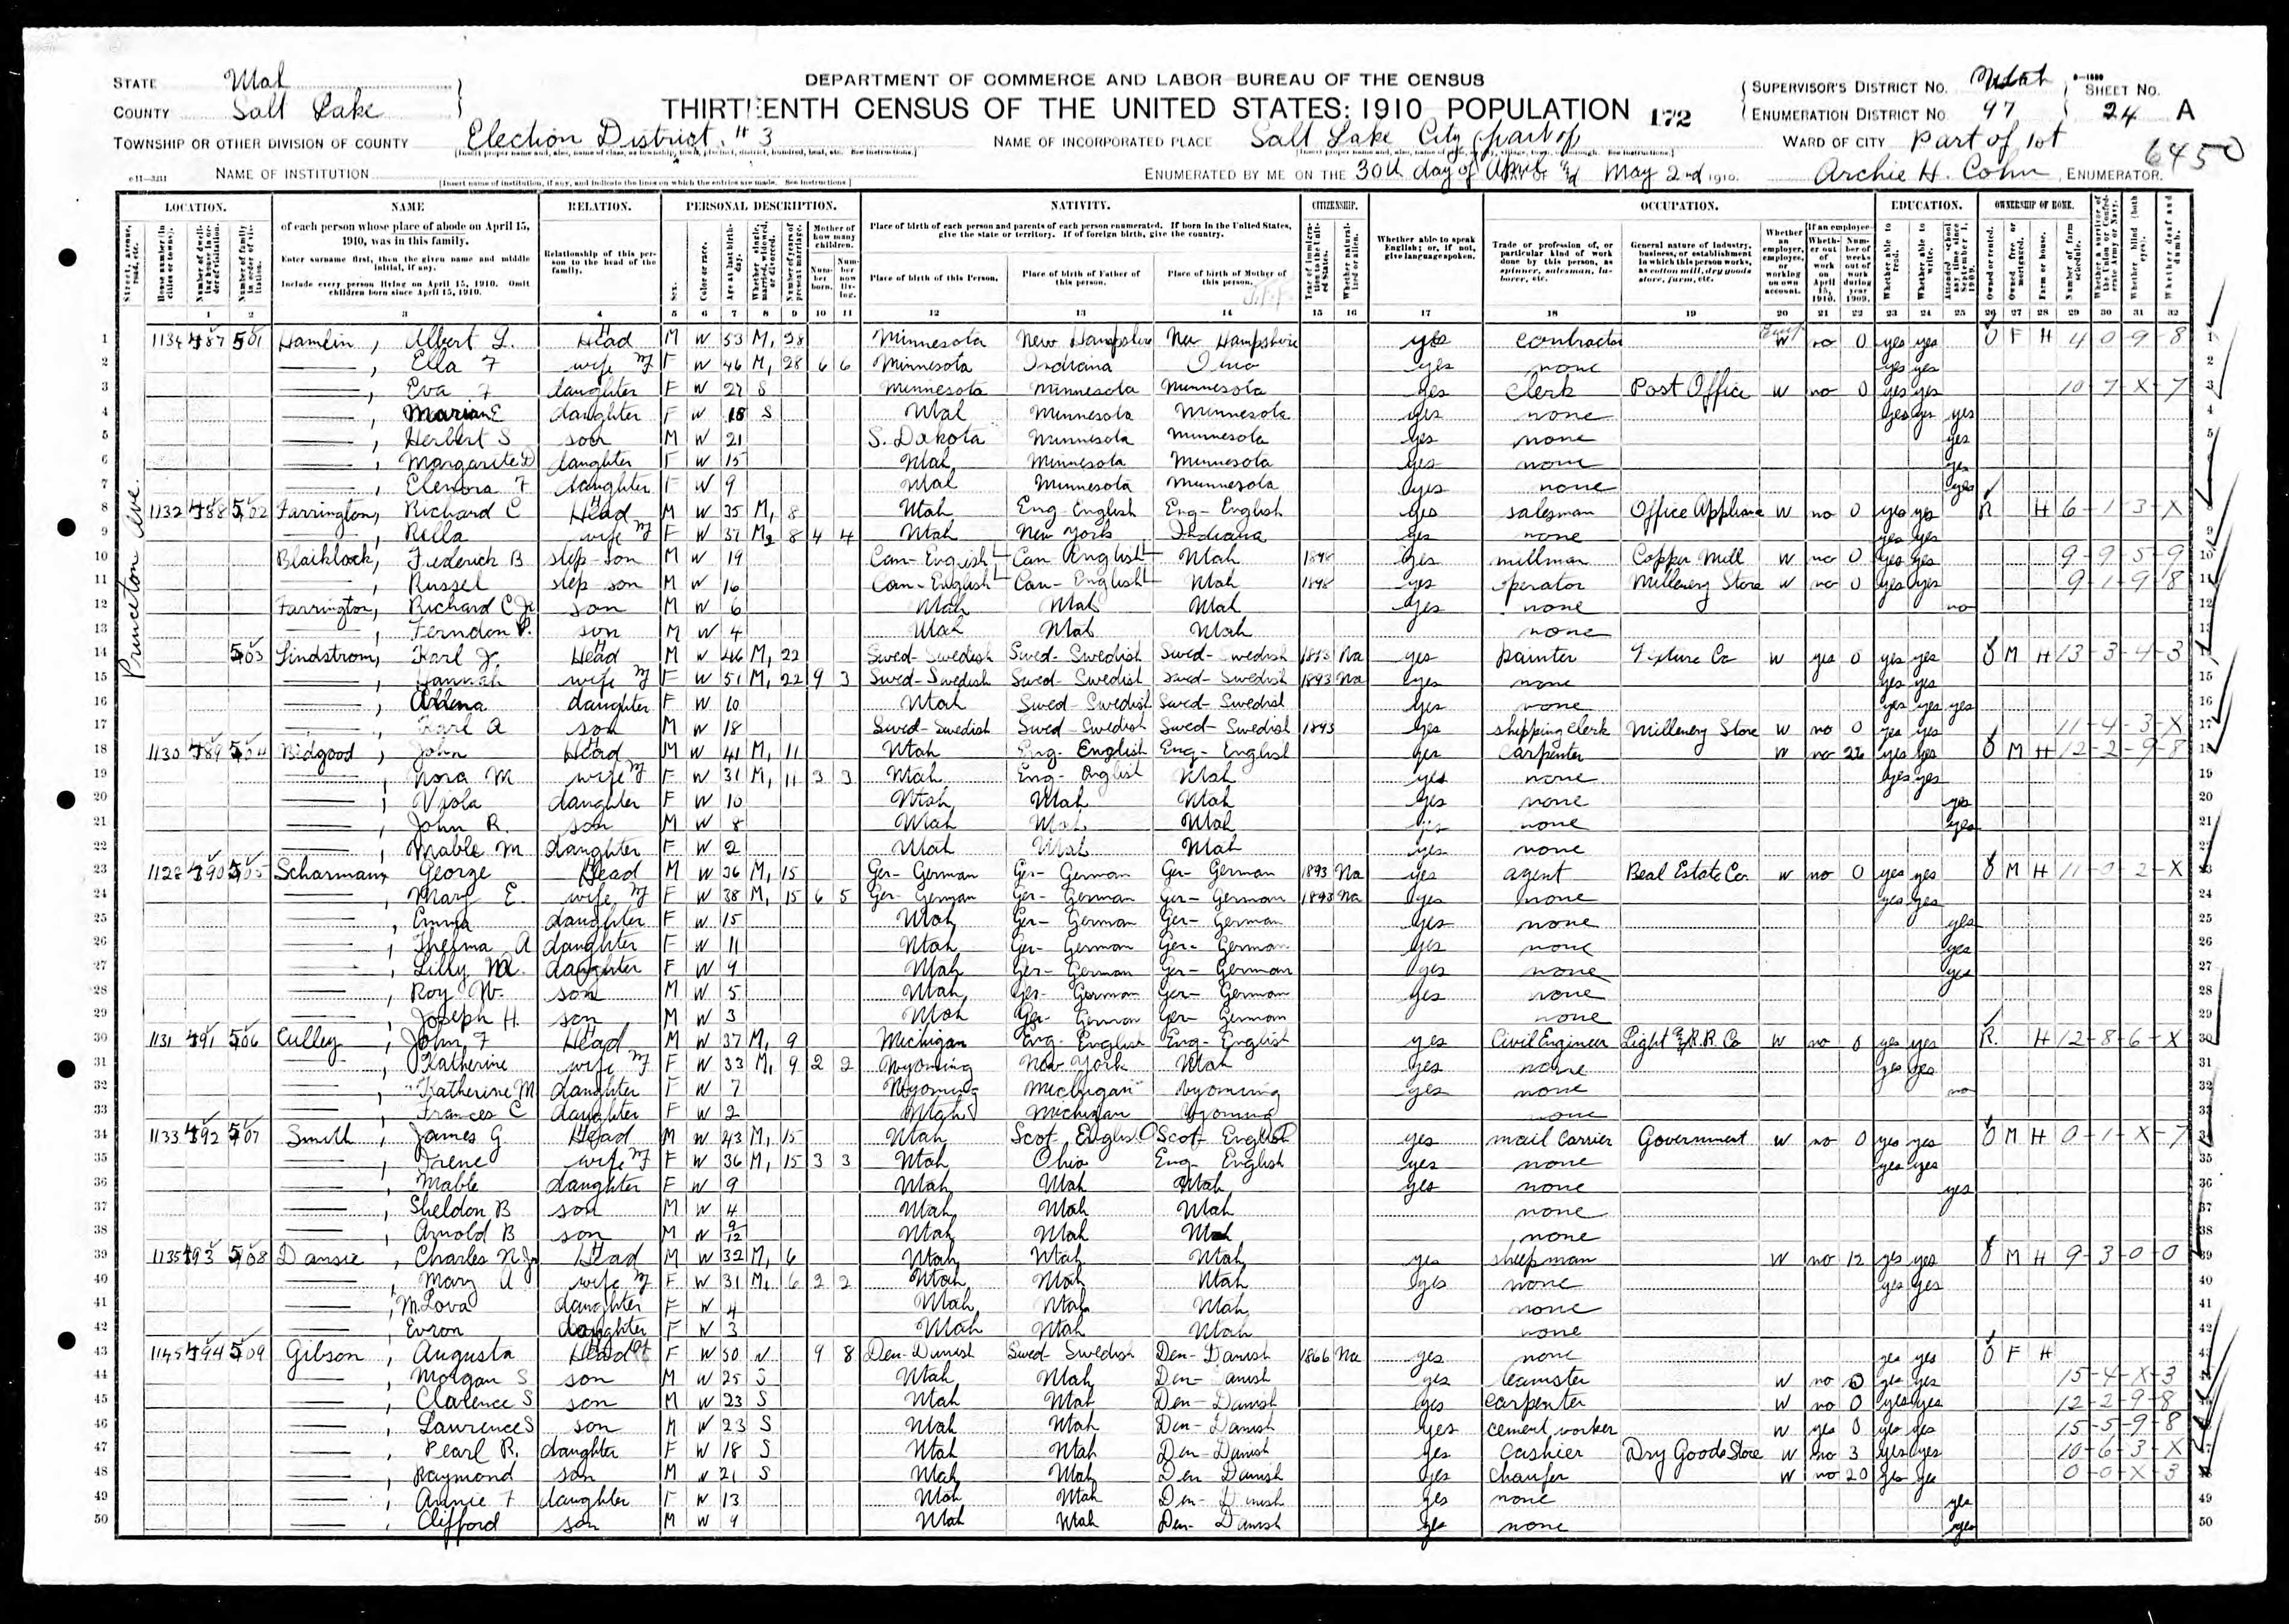 DEPARTMENT OF COMMERCE AND LABOR—BUREAU OF THE CENSUS
THIRTEENTH CENSUS OF THE UNITED STATES: 1910 POPULATION
172
STATE Utah
COUNTY Salt Lake
TOWNSHIP OR OTHER DIVISION OF COUNTY Election District # 3
NAME OF INSTITUTION
NAME OF INCORPORATED PLACE Salt Lake City (part of
ENUMERATED BY ME ON THE 30th day of April & May 2nd 1910.
SUPERVISOR'S DISTRICT NO. Utah
ENUMERATION DISTRICT NO. 97
SHEET NO. 24 A
WARD OF CITY Part of 1st
6450
Archie H. Cohn, ENUMERATOR.
LOCATION. NAME RELATION. PERSONAL DESCRIPTION. NATIVITY. CITIZENSHIP. OCCUPATION. EDUCATION. OWNERSHIP OF HOME.
of each person whose place of abode on April 15, 1910, was in this family.
Enter surname first, then the given name and middle initial, if any.
Include every person living on April 15, 1910. Omit children born since April 15, 1910.
Relationship of this person to the head of the family.
Place of birth of each person and parents of each person enumerated. If born in the United States, give the state or territory. If of foreign birth, give the country.
Place of birth of this Person. Place of birth of Father of this person. Place of birth of Mother of this person.
Whether able to speak English; or, if not, give language spoken.
Princeton Ave.
1 1134 487 501 Hamlin, Albert L. Head M W 53 M1 28 Minnesota New Hampshire New Hampshire yes contractor W no 0 yes yes O F H 4-0-9-8
2 ——, Ella F wife F W 46 M1 28 6 6 Minnesota Indiana Ohio yes none yes yes
3 ——, Eva F daughter F W 27 S Minnesota Minnesota Minnesota yes Clerk Post Office W no 0 yes yes 10-7-X-7
4 ——, Marian E daughter F W 18 S Utah Minnesota Minnesota yes none yes yes yes
5 ——, Herbert S son M W 21 S. Dakota Minnesota Minnesota yes none yes
6 ——, Margarite D daughter F W 15 Utah Minnesota Minnesota yes none yes
7 ——, Elenora F daughter F W 9 Utah Minnesota Minnesota yes none yes
8 1132 488 502 Farrington, Richard C Head M W 35 M1 8 Utah Eng-English Eng-English yes salesman Office Appliance W no 0 yes yes R H 6-1-3-X
9 ——, Rilla wife F W 37 M2 8 4 4 Utah New York Indiana yes none yes yes
10 Blacklock, Frederick B step-son M W 19 Can-English Can English Utah 1898 yes millman Copper Mill W no 0 yes yes 9-9-5-9
11 ——, Russel step son M W 16 Can-English Can-English Utah 1898 yes operator Millenery Store W no 0 yes yes 9-1-9-8
12 Farrington, Richard C Jr son M W 6 Utah Utah Utah yes none no
13 ——, Ferndon P. son M W 4 Utah Utah Utah none
14 503 Lindstrom, Karl J. Head M W 46 M1 22 Swed-Swedish Swed-Swedish Swed-Swedish 1893 Na yes painter Fixture Co W yes 0 yes yes O M H 13-3-4-3
15 ——, Hannah wife F W 51 M1 22 9 3 Swed-Swedish Swed-Swedish Swed-Swedish 1893 Na yes none yes yes
16 ——, daughter F W 10 Utah Swed-Swedish Swed-Swedish yes none yes yes yes
17 ——, Karl A son M W 18 Swed-Swedish Swed-Swedish Swed-Swedish 1893 yes shipping clerk Millenery Store W no 0 yes yes 11-4-3-X
18 1130 489 504 Bidgood, John Head M W 41 M1 11 Utah Eng-English Eng-English yes carpenter W no 26 yes yes O M H 12-2-9-8
19 ——, Nora M wife F W 31 M1 11 3 3 Utah Eng-English Utah yes none yes yes
20 ——, Viola daughter F W 10 Utah Utah Utah yes none yes
21 ——, John R. son M W 8 Utah Utah Utah yes none yes
22 ——, Mable M daughter F W 2 Utah Utah Utah yes none
23 1128 490 505 Scharmann, George Head M W 36 M1 15 Ger-German Ger-German Ger-German 1893 Na yes agent Real Estate Co. W no 0 yes yes O M H 11-0-2-X
24 ——, Mary E. wife F W 38 M1 15 6 5 Ger-German Ger-German Ger-German 1893 Na yes none yes yes
25 ——, Emma daughter F W 15 Utah Ger-German Ger-German yes none yes
26 ——, Thelma A daughter F W 11 Utah Ger-German Ger-German yes none yes
27 ——, Lilly M. daughter F W 9 Utah Ger-German Ger-German yes none yes
28 ——, Roy W. son M W 5 Utah Ger-German Ger-German yes none
29 ——, Joseph H. son M W 3 Utah Ger-German Ger-German none
30 1131 491 506 Culley, John F Head M W 37 M1 9 Michigan Eng-English Eng-English yes Civil Engineer Light & R.R. Co W no 0 yes yes R. H 12-8-6-X
31 ——, Katherine wife F W 33 M1 9 2 2 Wyoming New York Utah yes none yes yes
32 ——, Katherine M daughter F W 7 Wyoming Michigan Wyoming yes none no
33 ——, Frances C daughter F W 2 Utah Michigan Wyoming none
34 1133 492 507 Smith, James G Head M W 43 M1 15 Utah Scot-English Scot-English yes mail carrier Government W no 0 yes yes O M H 0-1-X-7
35 ——, Irene wife F W 36 M1 15 3 3 Utah Ohio Eng-English yes none yes yes
36 ——, Mable daughter F W 9 Utah Utah Utah yes none yes
37 ——, Sheldon B son M W 4 Utah Utah Utah none
38 ——, Arnold B son M W 9/12 Utah Utah Utah none
39 1135 493 508 Dansie, Charles N. Jr Head M W 32 M1 6 Utah Utah Utah yes sheepman W no 12 yes yes O M H 9-3-0-0
40 ——, Mary A wife F W 31 M1 6 2 2 Utah Utah Utah yes none yes yes
41 ——, M. Lova daughter F W 4 Utah Utah Utah none
42 ——, Evron daughter F W 3 Utah Utah Utah none
43 1145 494 509 Gibson, Augusta Head F W 50 9 8 Den-Danish Swed-Swedish Den-Danish 1866 Na yes none yes yes O F H
44 ——, Morgan S son M W 25 S Utah Utah Den-Danish yes teamster W no 0 yes yes 15-4-X-3
45 ——, Clarence S son M W 23 S Utah Utah Den-Danish yes carpenter W no 0 yes yes 12-2-9-8
46 ——, Lawrence S son M W 23 S Utah Utah Den-Danish yes cement worker W yes 0 yes yes 15-5-9-8
47 ——, Pearl R. daughter F W 18 S Utah Utah Den-Danish yes cashier Dry Goods Store W no 3 yes yes 10-6-3-X
48 ——, Raymond son M W 21 S Utah Utah Den-Danish yes chaufer W no 20 yes yes 0-0-X-3
49 ——, Annie F daughter F W 13 Utah Utah Den-Danish yes none yes
50 ——, Clifford son M W 9 Utah Utah Den-Danish yes none yes